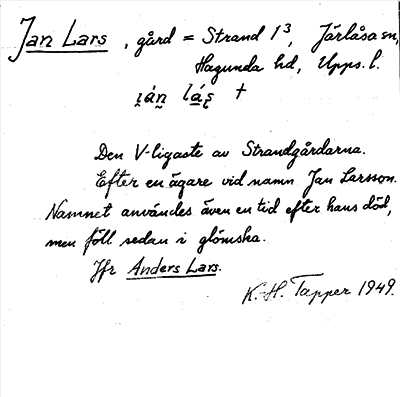 Jan Lars, gård = Strand 1³, Järlåsa sn,
Hagunda hd, Upps. l.
i̯án lás̨ +
Den V-ligaste av Strandgårdarna.
Efter en ägare vid namn Jan Larsson.
Namnet användes även en tid efter hans död,
men föll sedan i glömska.
Jfr Anders Lars.
K.-H. Tapper 1949.